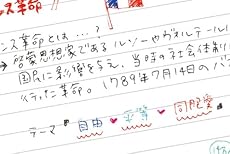 ンス革命
ンス革命とは…?
→啓蒙思想家であるルソーやヴォルテール
国民に影響を与え、当時の社会体制
行った革命。1789年7月14日のバ
テーマ 自由 ♥ 平等 ♥ 同胞愛